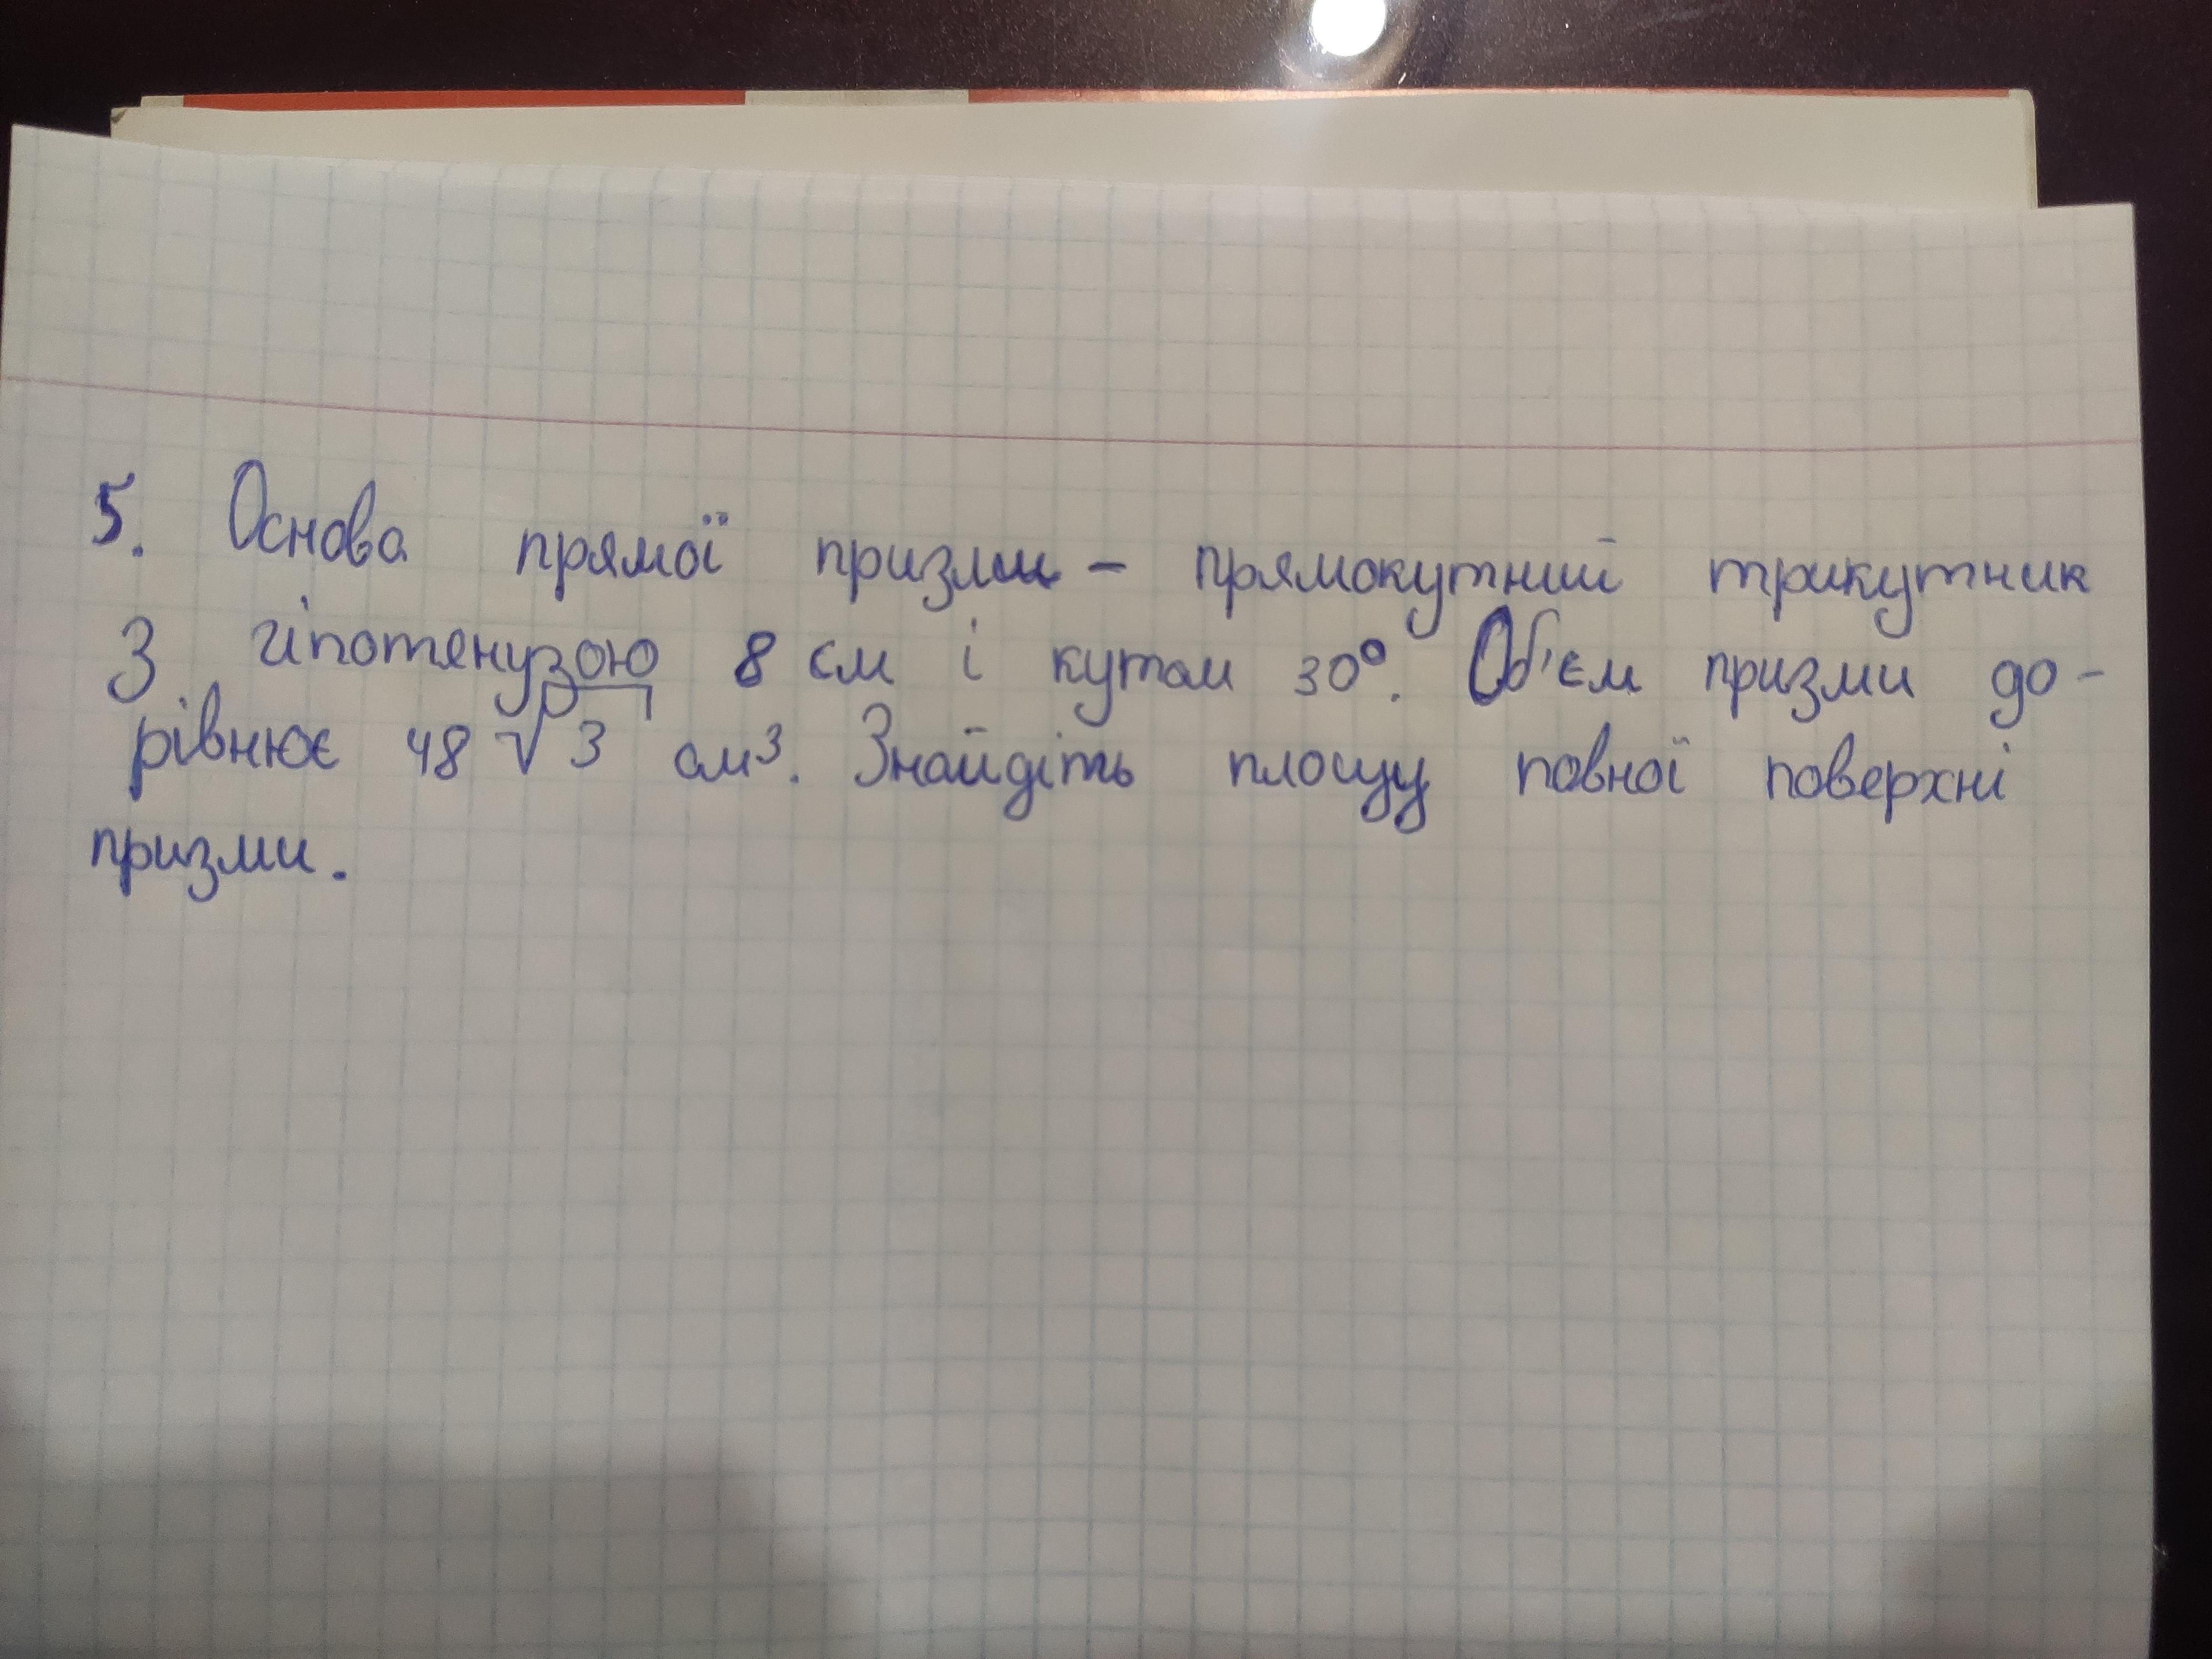 5. Основа прямої призми - прямокутний трикутник
З гіпотенузою 8 см і кутом 30°. Об'єм призми до-
рівнює 48 √3 см³. Знайдіть площу повної поверхні
призми.